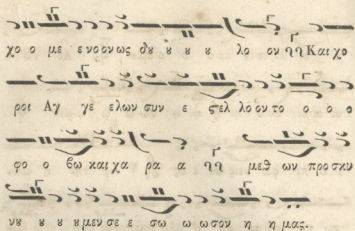 χο ο με ενοονως δυ υ υ υ λο ον Και χο
ροι Αγ γε ελων συν ε ςελ λο όν το ο ο ο
φο ο βω και χα ρα α μεθ ων προσκυ
νυ υ υ υ μεν σε ε σω ω ω σον η η μας.